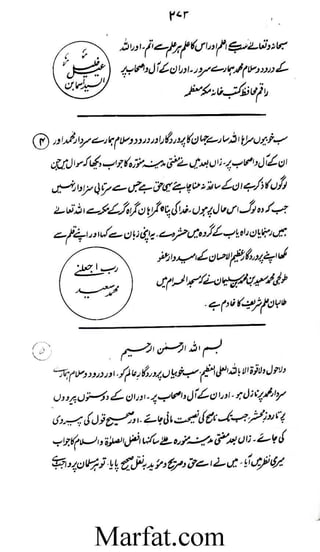 ۲۷۳
سبحانہ وتعالےٰ سب سے اعلم اور اس کا علم ہر علم سے اتم۔ اور اللہ
کے درود وسلام محمد ہمارے سردار۔ اور ان کے آل واصحاب پر
راقم محافظ کتب خانہ مکہ معظمہ
سب خوبیوں سراہا اللہ سارے جہان کا پروردگار اور درود وسلام ہمارے سردار محمد اور
ان کے آل واصحاب پر۔ زاں بعد میں نے مفتی مدینہ منورہ کا جواب دیکھا کہ سوال میں جن
لوگوں کا ذکر ہے ان کے ساتھ نہ منا چاہئے یہی حق ہے جس سے سرتابی سزاوار نہیں
جب کہ وہ لوگ اس حال پر ہوں۔ خدا کی پناہ گمراہان گمراہ گر کے مکر سے اللہ تعالےٰ
ہمیں رہنمایان راہ یاب کے گروہ میں حشر دے۔ یہ اپنی زبان سے کہا اور اپنے قلم سے
لکھا اپنے پروردگار عظیم الاحسان کے امیدوار عفو
محمد سعید بن محمد سلیمان نے کہ مسجد الحرام میں
طالبان علم شریف کا خادم ہے۔
رب اجعلنی
محمد سعید
بسم اللہ الرحمٰن الرحیم
ولاحول ولاقوۃ الا باللہ العلی العظیم۔ سب خوبیاں پروردگار عالم کو۔ اور درود وسلام ہمارے
سردار محمد پر نازل ہو۔ اور ان کے آل واصحاب پر۔ اور ان کے دوستوں پیرووں
پر تا روز محشر، جب تک ناصح کی نصیحت مانی جائے۔ اور صحیح قول کی پیروی
کی جائے۔ زاں بعد مفتی مدینہ منورہ علےٰ ساکنہا افضل الصلوٰۃ والسلام کا جواب
میری نظر میں آیا۔ میں نے اسے حق وصریح ومؤید بہ نقل صحیح پایا۔ تو ہر مسلمان پر واجب ہے
Marfat.com